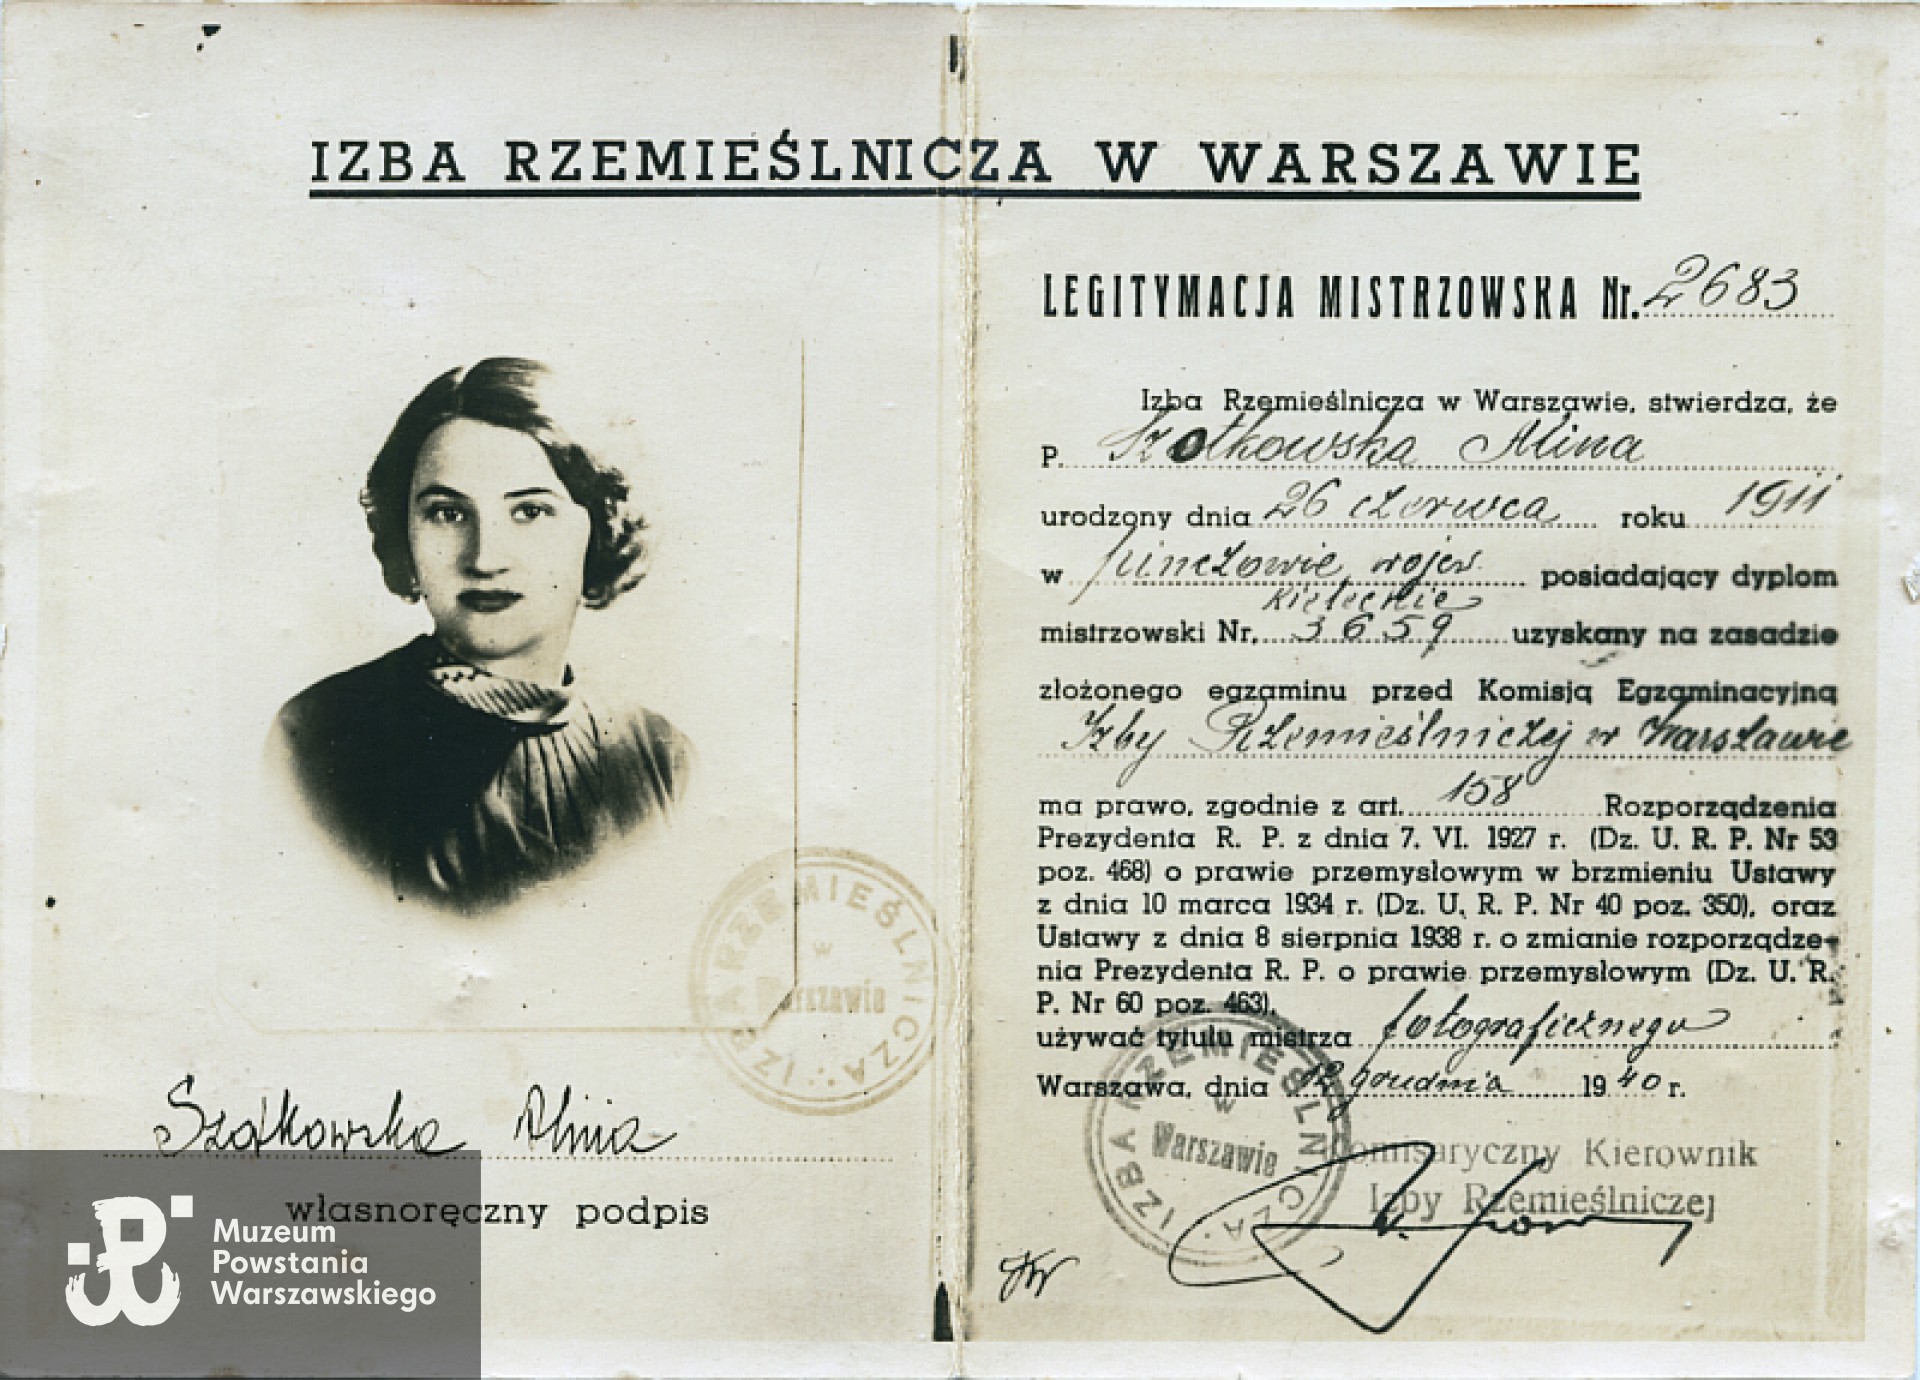 IZBA RZEMIEŚLNICZA W WARSZAWIE
LEGITYMACJA MISTRZOWSKA Nr. 2683
Izba Rzemieślnicza w Warszawie, stwierdza, że
P. Szotkowska Alina
urodzony dnia 26 czerwca roku 1911
w Pinczowie wojew. posiadający dyplom
Kieleckie
mistrzowski Nr. 3659 uzyskany na zasadzie
złożonego egzaminu przed Komisją Egzaminacyjną
Izby Rzemieślniczej w Warszawie
ma prawo, zgodnie z art. 158 Rozporządzenia
Prezydenta R. P. z dnia 7. VI. 1927 r. (Dz. U. R. P. Nr 53
poz. 468) o prawie przemysłowym w brzmieniu Ustawy
z dnia 10 marca 1934 r. (Dz. U. R. P. Nr 40 poz. 350), oraz
Ustawy z dnia 8 sierpnia 1938 r. o zmianie rozporządze-
nia Prezydenta R. P. o prawie przemysłowym (Dz. U. R.
P. Nr 60 poz. 463),
używać tytułu mistrza fotograficznego
Warszawa, dnia 12 grudnia 1940 r.
Komisaryczny Kierownik
Izby Rzemieślniczej
IZBA RZEMIEŚLNICZA
w
Warszawie
IZBA RZEMIEŚLNICZA
w
Warszawie
Szotkowska Alina
własnoręczny podpis
Muzeum
Powstania
Warszawskiego